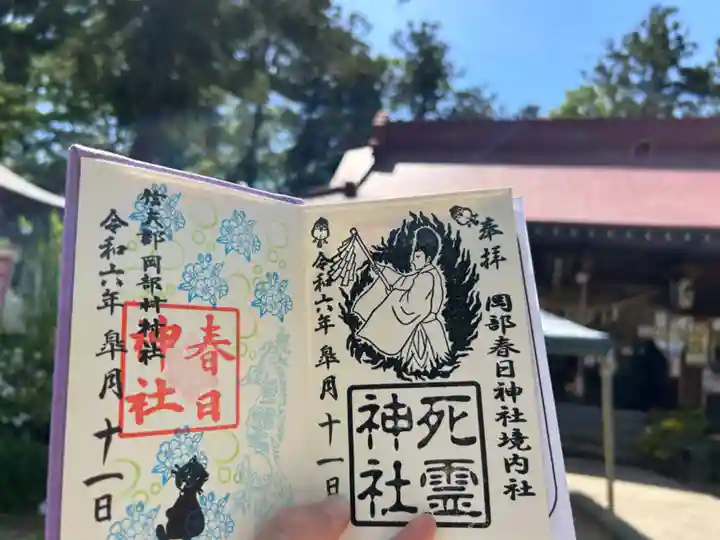 奉拝
岡部春日神社境内社
死霊
神社
令和六年 皐月 十一日
信夫郡岡部村村社
春日
神社
令和六年 皐月 十一日